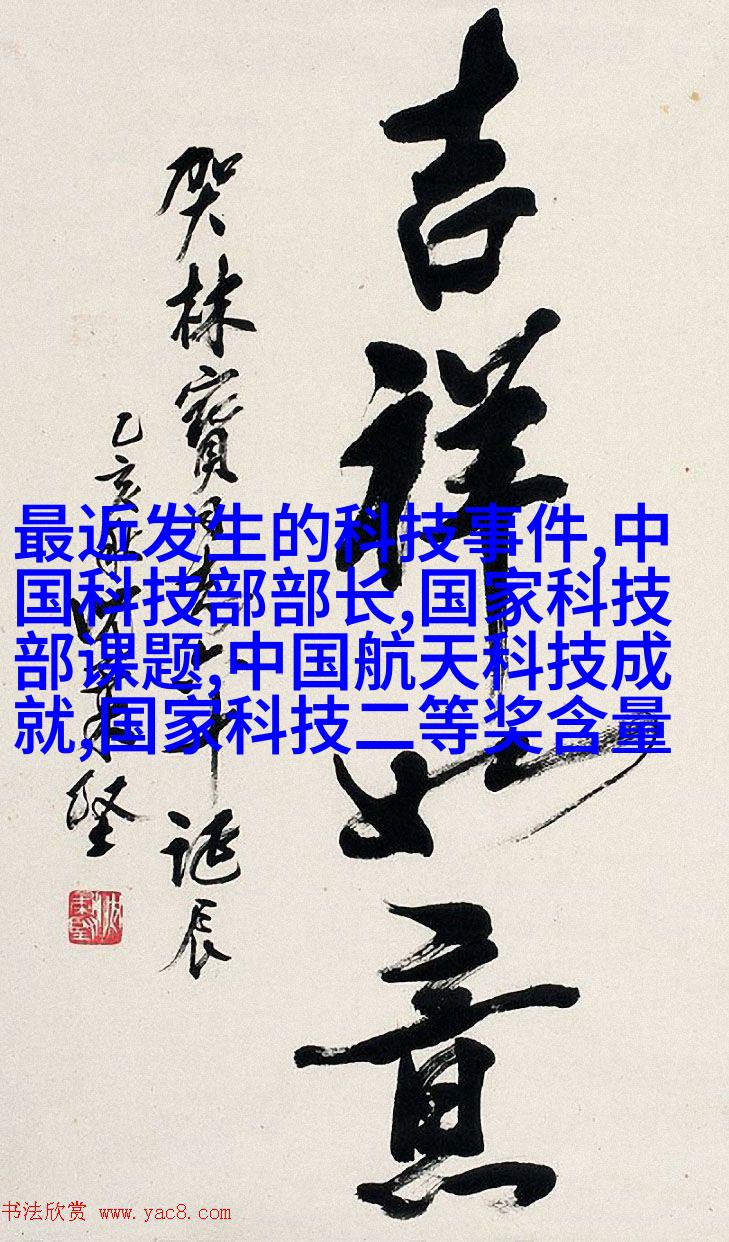 吉祥如意
贺林宝
诞辰
乙亥
坚
最近发生的科技事件,中
国科技部部长,国家科技
部课题,中国航天科技成
就,国家科技二等奖含量
书法欣赏 www.yac8.com